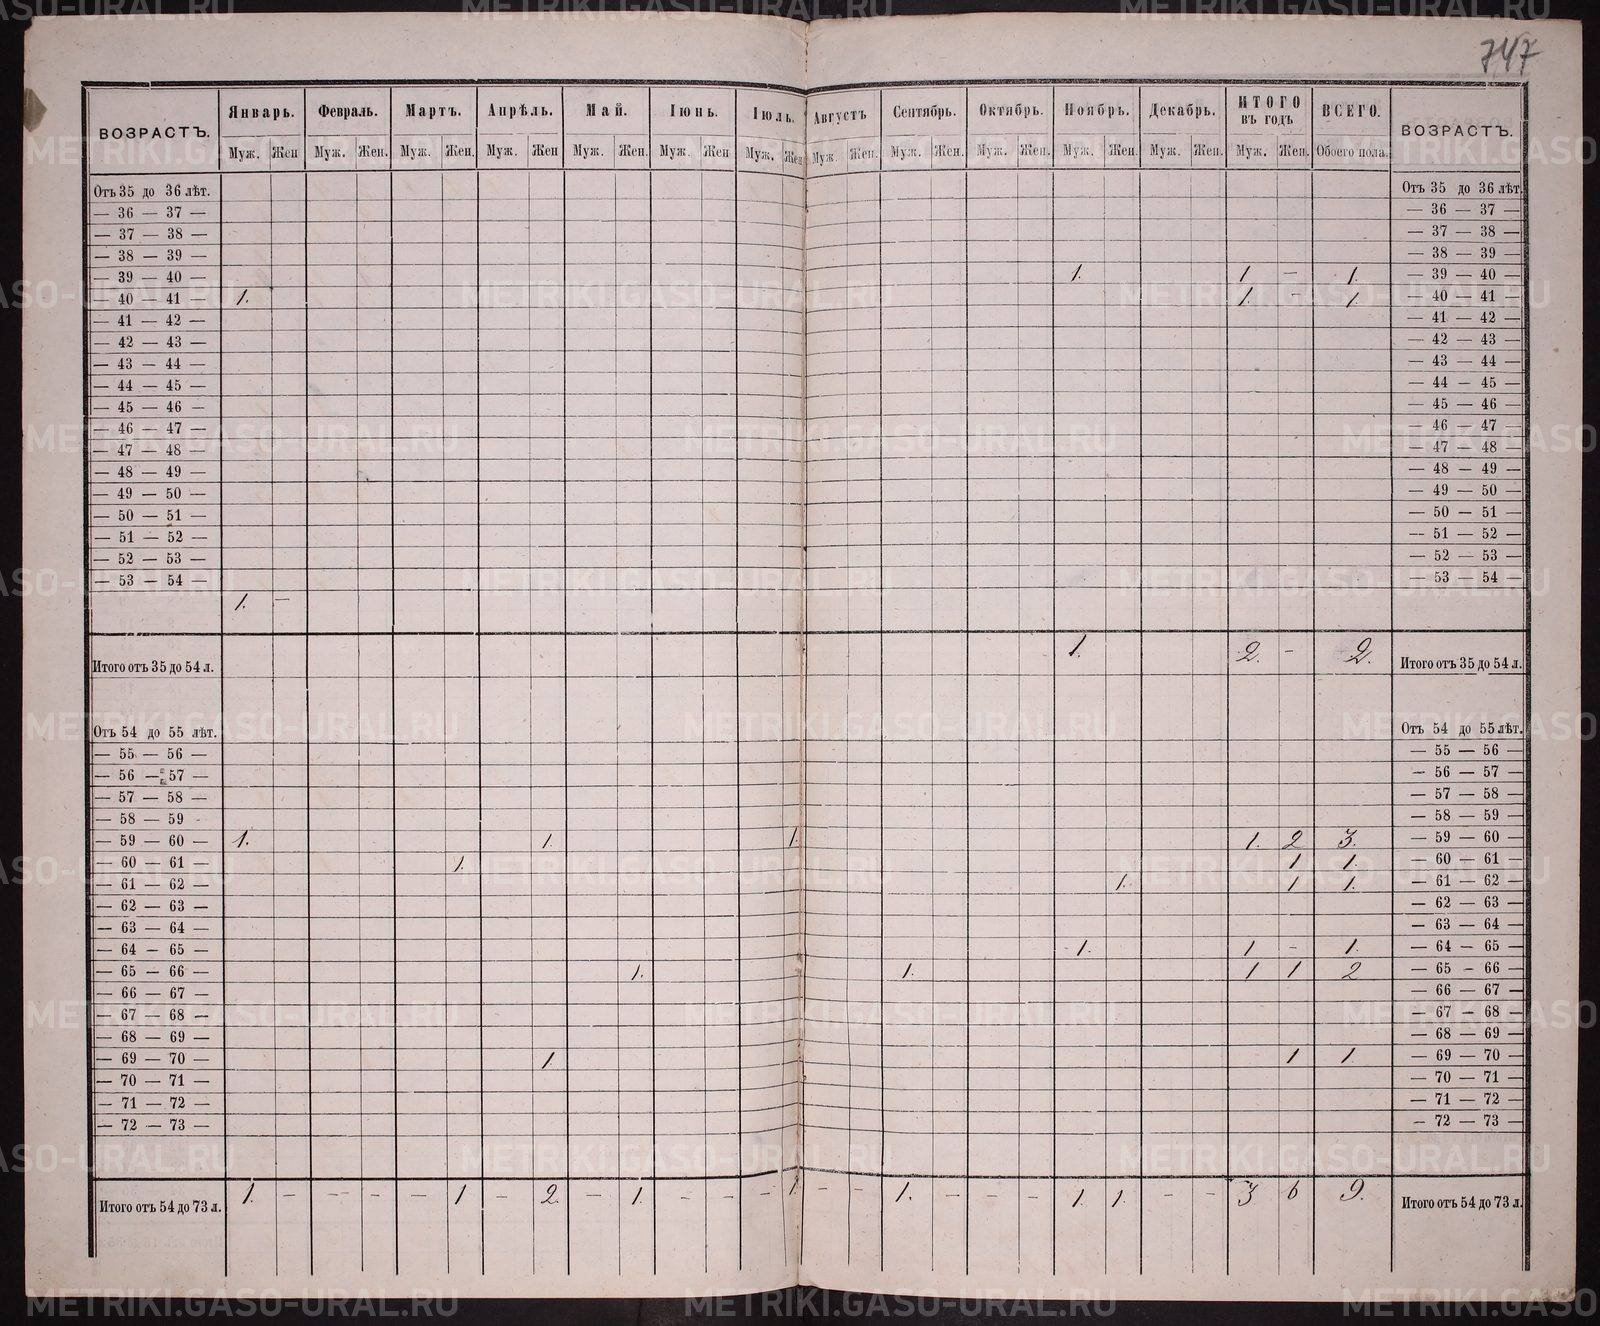 747
ВОЗРАСТЪ. Январь. Февраль. Мартъ. Апрѣль. Май. Іюнь. Іюль. Августъ Сентябрь. Октябрь. Ноябрь. Декабрь. ИТОГО въ годъ ВСЕГО. ВОЗРАСТЪ.
Муж. Жен Муж. Жен. Муж. Жен. Муж. Жен Муж. Жен. Муж. Жен Муж. Жен Муж. Жен. Муж. Жен. Муж. Жен. Муж. Жен. Муж. Жен. Муж. Жен. Обоего пола.
Отъ 35 до 36 лѣт. Отъ 35 до 36 лѣт.
— 36 — 37 — — 36 — 37 —
— 37 — 38 — — 37 — 38 —
— 38 — 39 — — 38 — 39 —
— 39 — 40 — 1. 1 — 1. — 39 — 40 —
— 40 — 41 — 1. 1. - 1 — 40 — 41 —
— 41 — 42 — — 41 — 42 —
— 42 — 43 — — 42 — 43 —
— 43 — 44 — — 43 — 44 —
— 44 — 45 — — 44 — 45 —
— 45 — 46 — — 45 — 46 —
— 46 — 47 — 46 — 47 —
— 47 — 48 — — 47 — 48 —
— 48 — 49 — — 48 — 49 —
— 49 — 50 — — 49 — 50 —
— 50 — 51 — — 50 — 51 —
— 51 — 52 — — 51 — 52 —
— 52 — 53 — — 52 — 53 —
— 53 — 54 — — 53 — 54 —
1. —
Итого отъ 35 до 54 л. 1. 2. - 2. Итого отъ 35 до 54 л.
Отъ 54 до 55 лѣт. Отъ 54 до 55 лѣт.
— 55 — 56 — — 55 — 56 —
— 56 — 57 — — 56 — 57 —
— 57 — 58 — — 57 — 58 —
— 58 — 59 - — 58 — 59 —
— 59 — 60 — 1. 1. 1. 1. 2 3. — 59 — 60 —
— 60 — 61 — 1. 1 1. — 60 — 61 —
— 61 — 62 — 1. 1 1. — 61 — 62 —
— 62 — 63 — — 62 — 63 —
— 63 — 64 — — 63 — 64 —
— 64 — 65 — 1. 1 - 1. — 64 — 65 —
— 65 — 66 — 1. 1. 1 1 2 — 65 — 66 —
— 66 — 67 — — 66 — 67 —
— 67 — 68 — — 67 — 68 —
— 68 — 69 — — 68 — 69 —
— 69 — 70 — 1 1 1 — 69 — 70 —
— 70 — 71 — — 70 — 71 —
— 71 — 72 — — 71 — 72 —
— 72 — 73 — — 72 — 73 —
Итого отъ 54 до 73 л. 1. — — — — 1 — 2 — 1. — — — 1. — — 1. — — — 1. 1. — — 3 6 9. Итого отъ 54 до 73 л.
METRIKI.GASO-URAL.RU